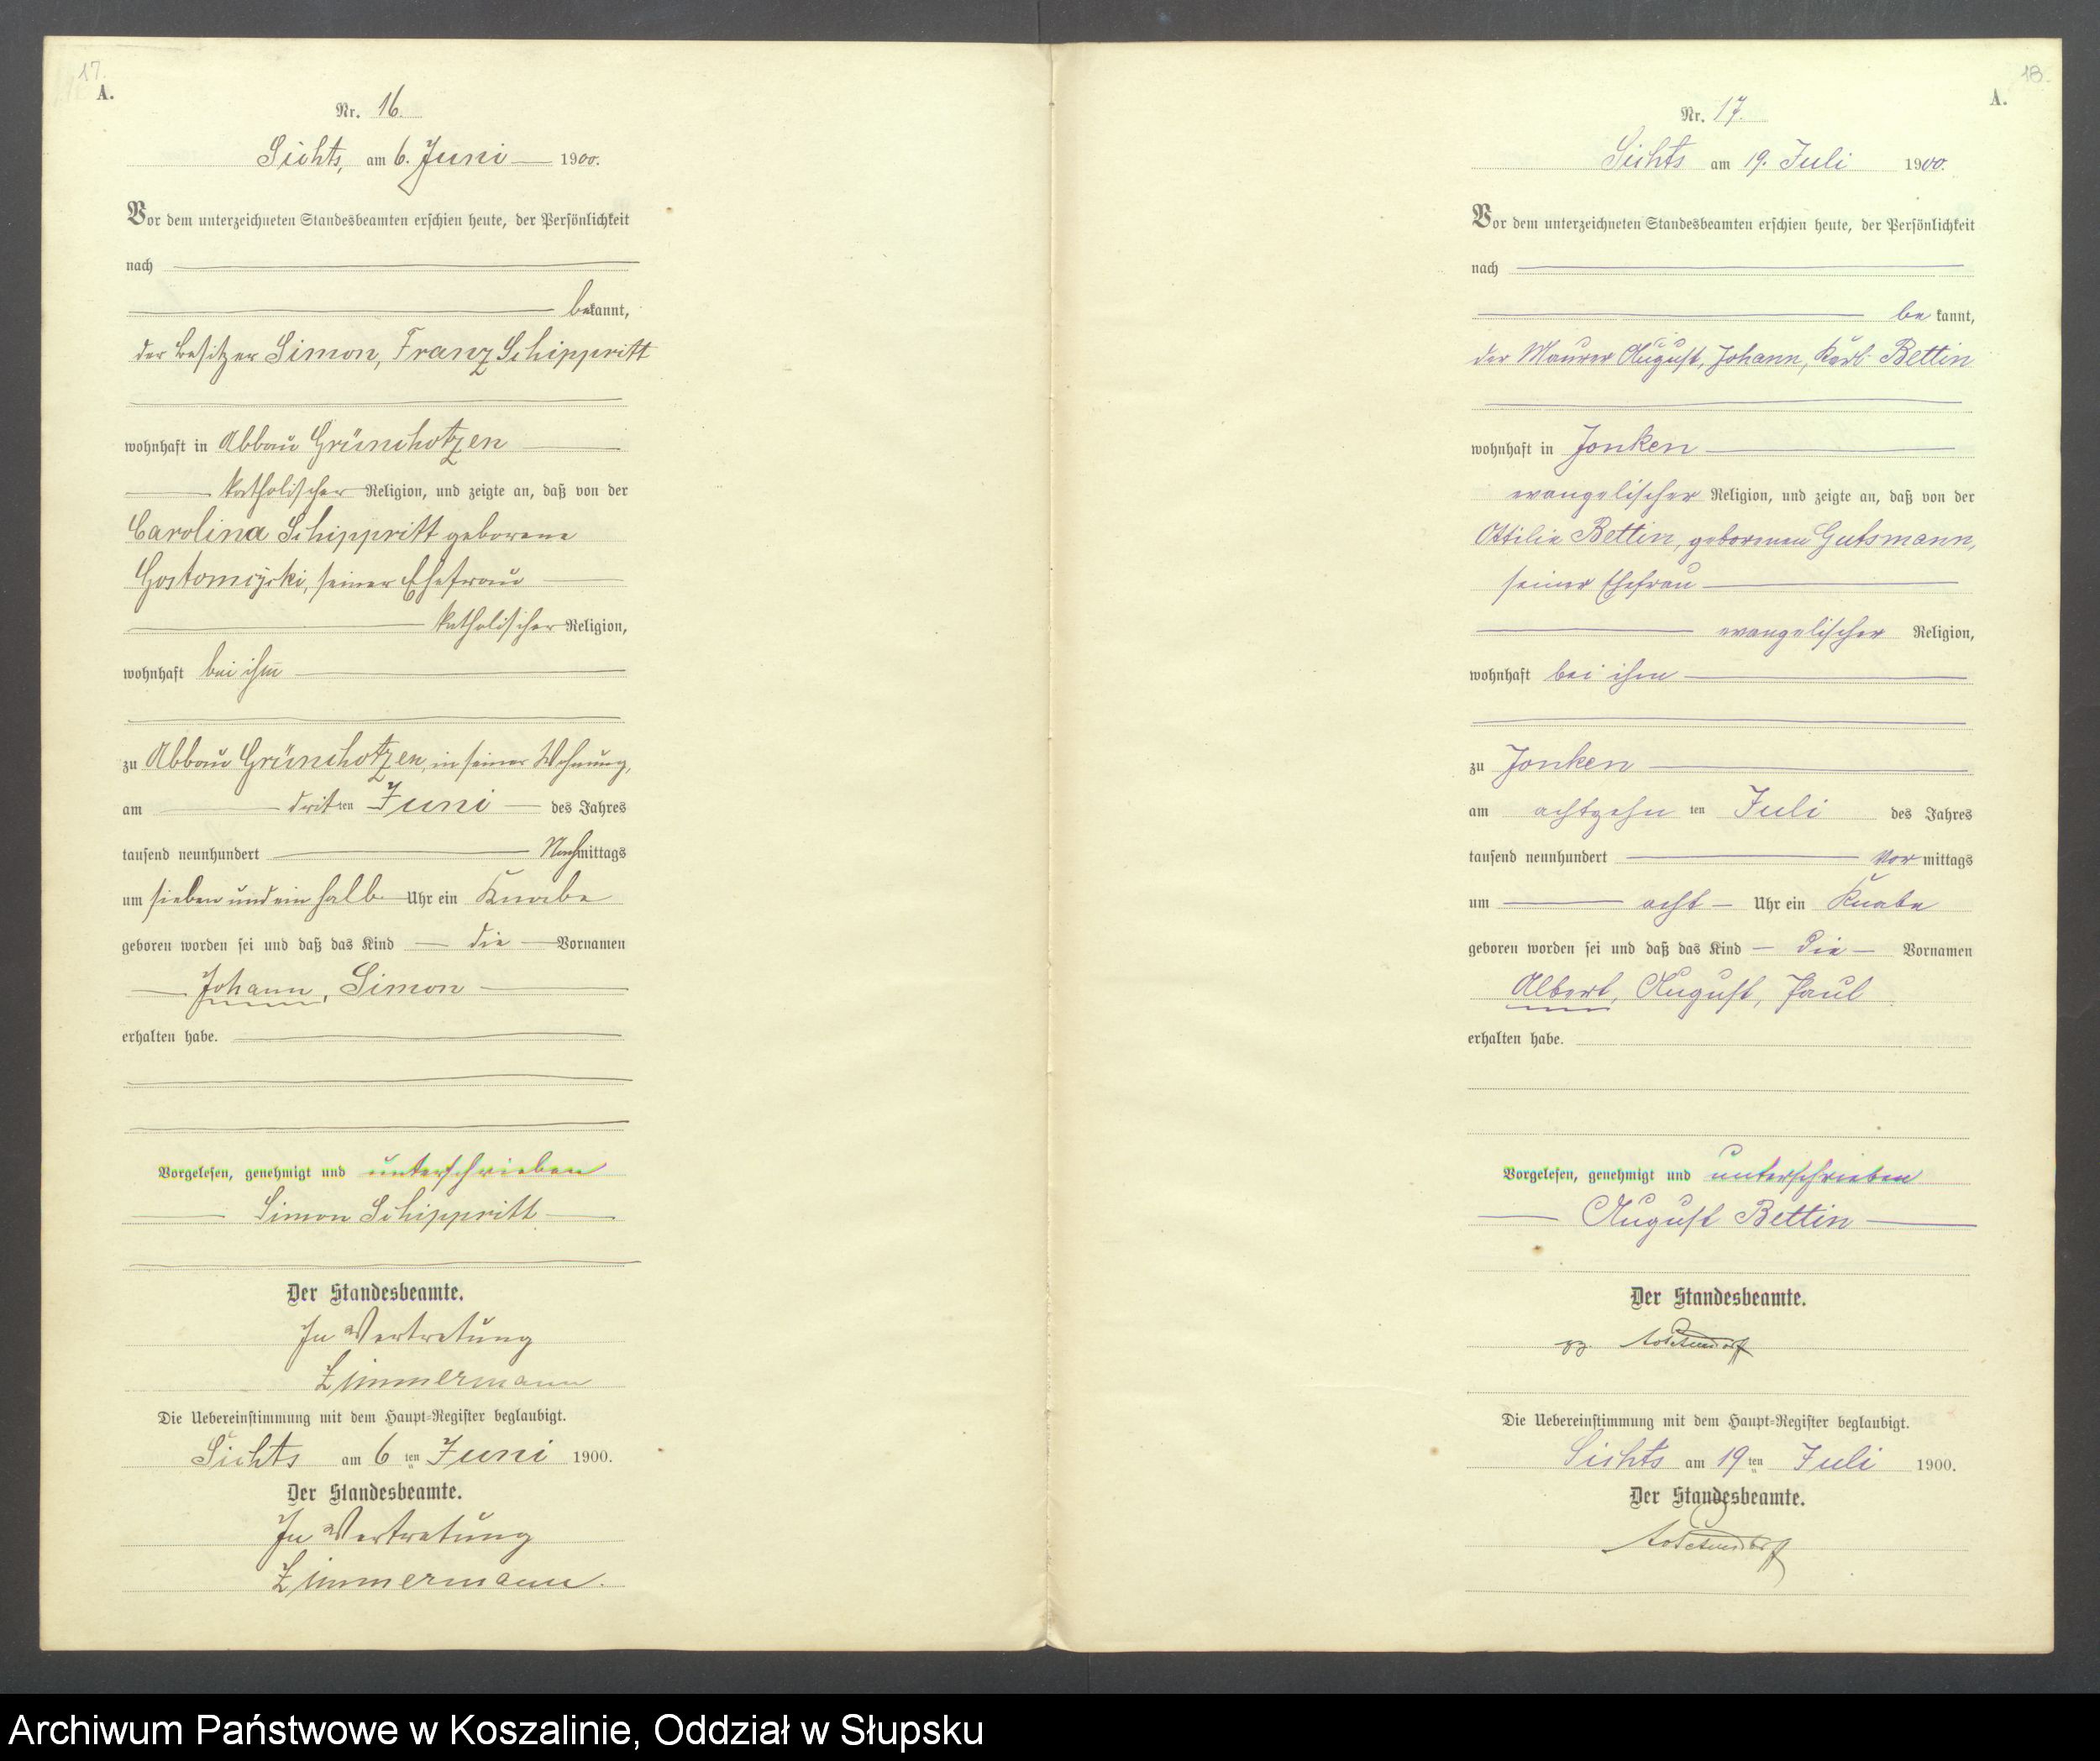 17.
A.
Nr. 16.
Sichts, am 6. Juni 1900.
Vor dem unterzeichneten Standesbeamten erschien heute, der Persönlichkeit
nach
bekannt,
der Besitzer Simon, Franz Schippritt
wohnhaft in Abbau Grünchotzen
katholischer Religion, und zeigte an, daß von der
Carolina Schippritt geborene
Gostomcyski, seiner Ehefrau
katholischer Religion,
wohnhaft bei ihm
zu Abbau Grünchotzen, in seiner Wohnung,
am dritten Juni des Jahres
tausend neunhundert Nachmittags
um sieben und ein halb Uhr ein Knabe
geboren worden sei und daß das Kind die Vornamen
Johann, Simon
erhalten habe.
Vorgelesen, genehmigt und unterschrieben
Simon Schippritt
Der Standesbeamte.
In Vertretung
Zimmermann
Die Uebereinstimmung mit dem Haupt-Register beglaubigt.
Sichts am 6ten Juni 1900.
Der Standesbeamte.
In Vertretung
Zimmermann.
18.
A.
Nr. 17.
Sichts am 19. Juli 1900.
Vor dem unterzeichneten Standesbeamten erschien heute, der Persönlichkeit
nach
bekannt,
der Maurer August, Johann, Karl Bettin
wohnhaft in Jonken
evangelischer Religion, und zeigte an, daß von der
Ottilie Bettin, geborenen Gutsmann,
seiner Ehefrau
evangelischer Religion,
wohnhaft bei ihm
zu Jonken
am achtzehn ten Juli des Jahres
tausend neunhundert Vormittags
um acht Uhr ein Knabe
geboren worden sei und daß das Kind die Vornamen
Albert, August, Paul
erhalten habe.
Vorgelesen, genehmigt und unterschrieben
August Bettin
Der Standesbeamte.
Die Uebereinstimmung mit dem Haupt-Register beglaubigt.
Sichts am 19ten Juli 1900.
Der Standesbeamte.
Archiwum Państwowe w Koszalinie, Oddział w Słupsku